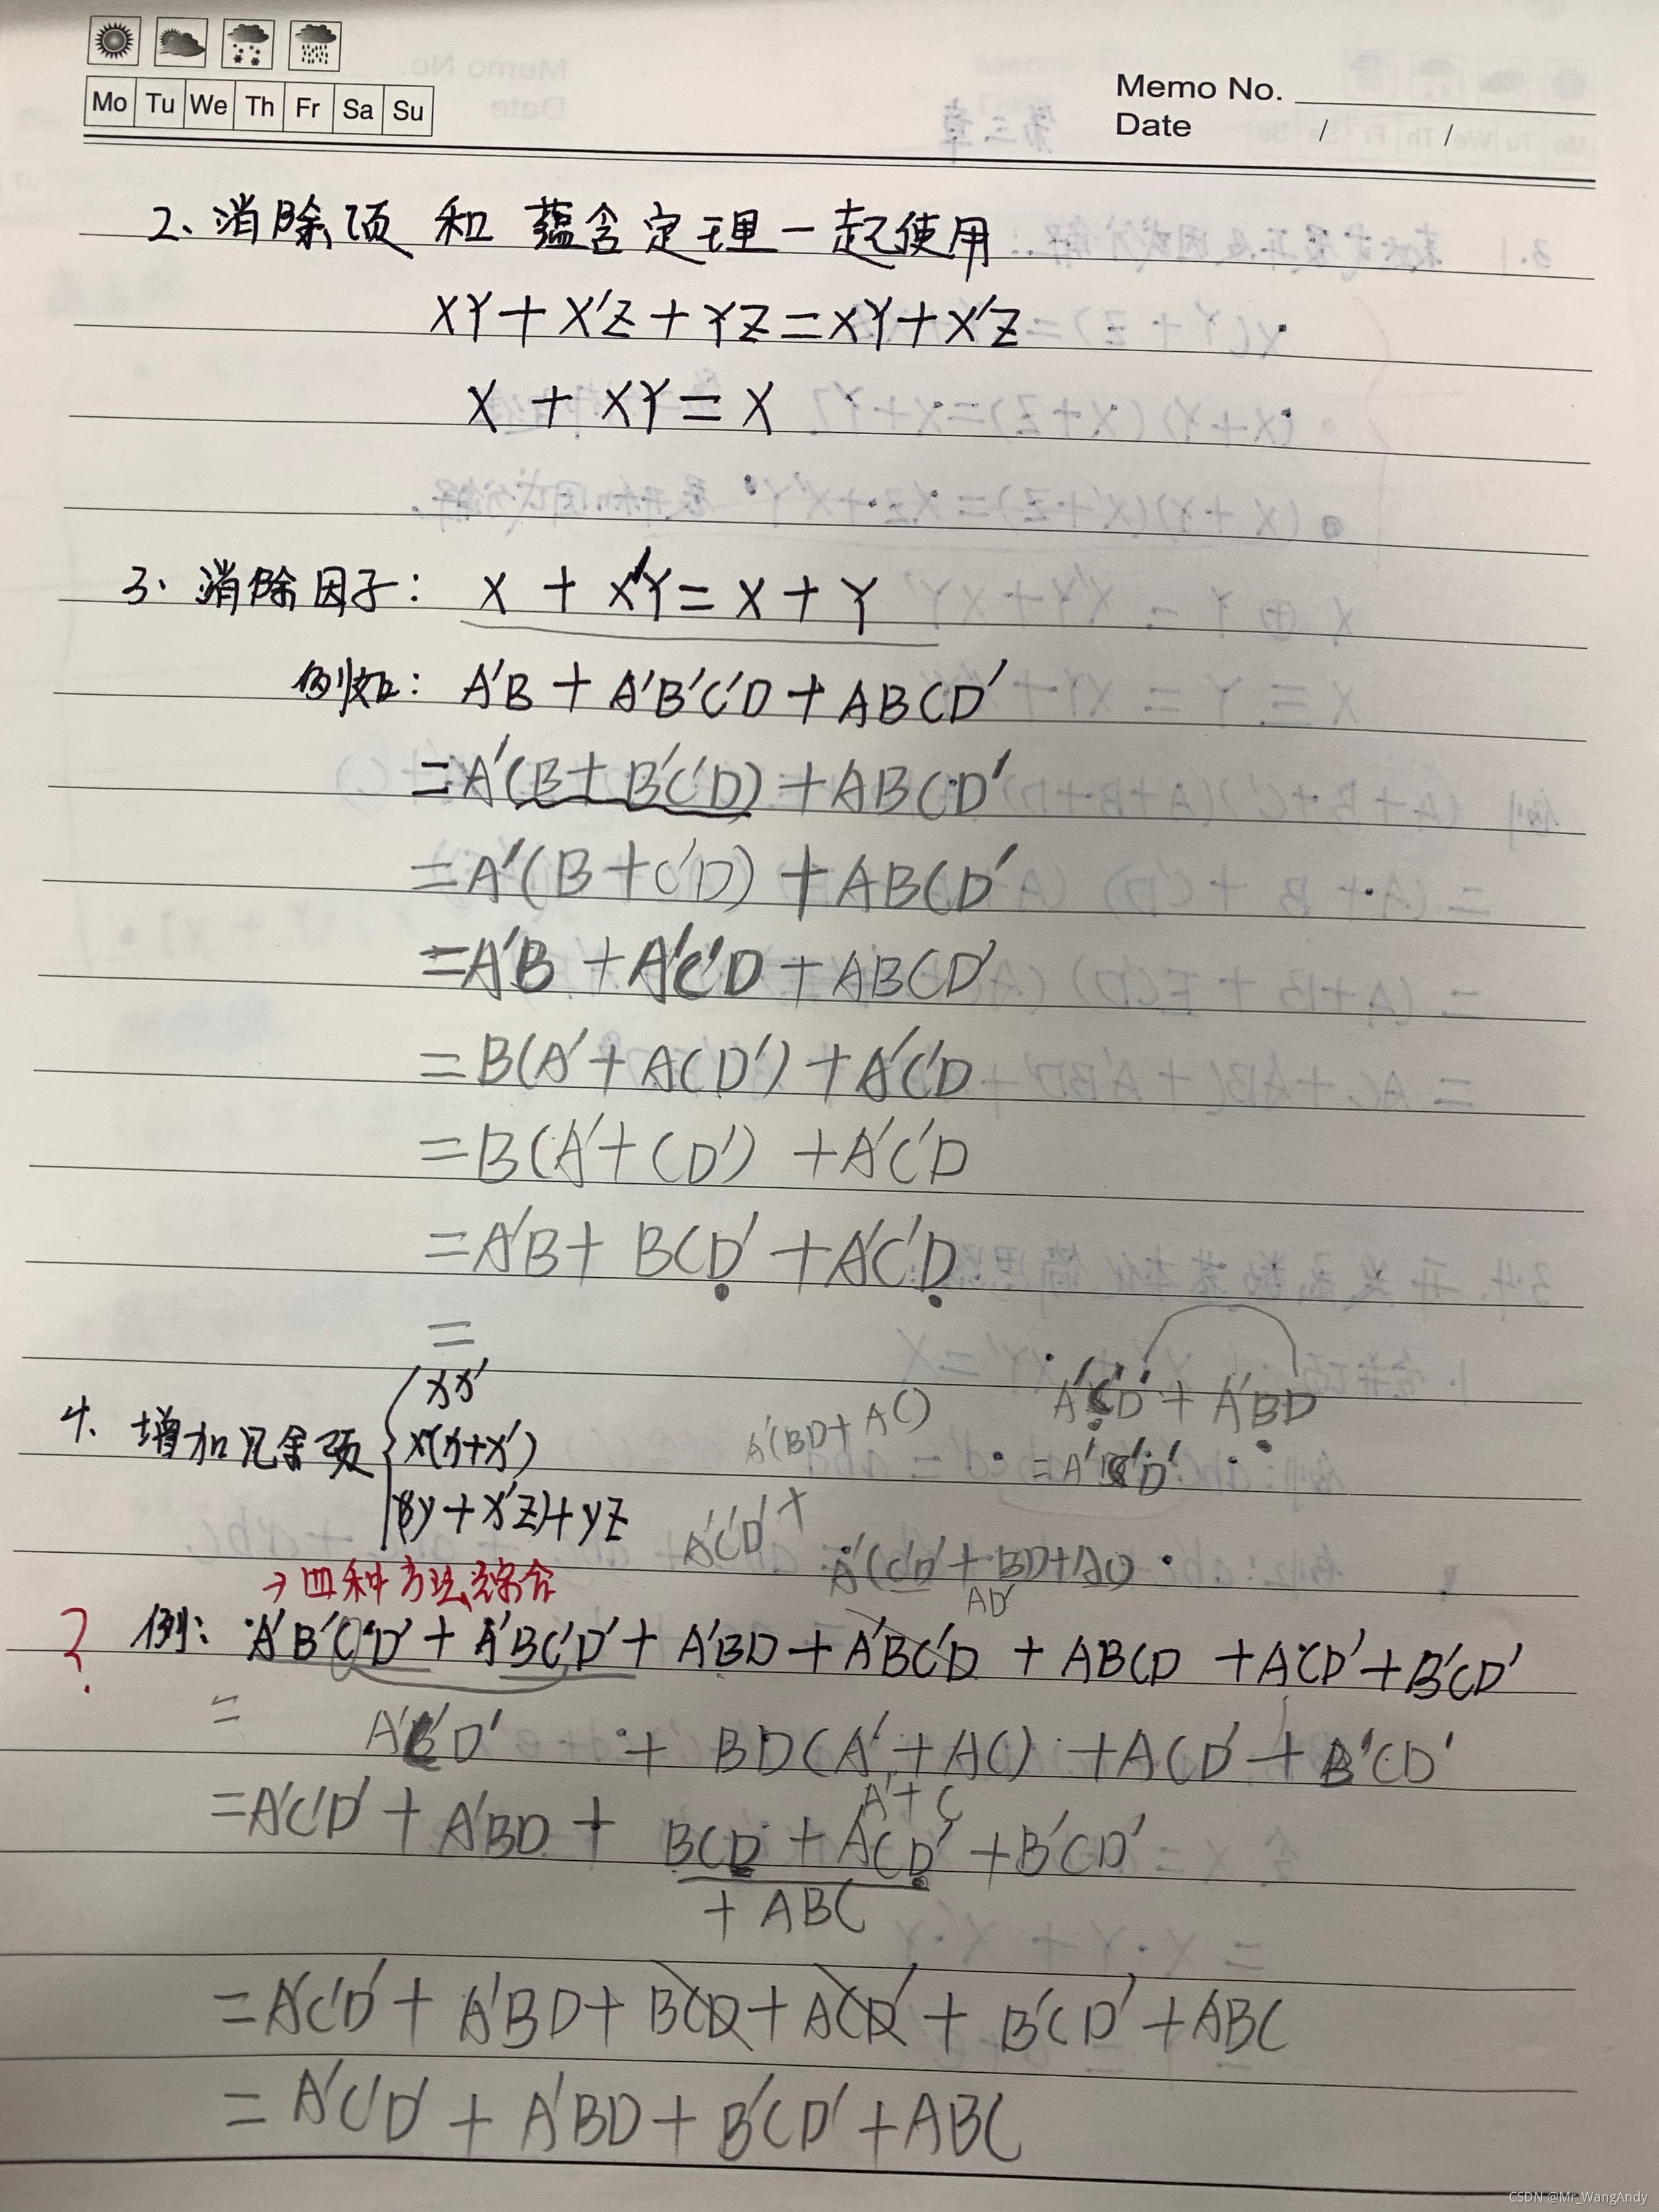 Mo Tu We Th Fr Sa Su
Memo No.
Date / /
2、消除项 和 蕴含定理一起使用
XY+X'Z+YZ=XY+X'Z
X+XY=X
3、消除因子: X+X'Y=X+Y
例如: A'B+A'B'C'D+ABCD'
=A'(B+B'C'D)+ABCD'
=A'(B+C'D)+ABCD'
=A'B+A'C'D+ABCD'
=B(A'+ACD')+A'C'D
=B(A'+CD')+A'C'D
=A'B+BCD'+A'C'D
=
4. 增加冗余项
xx'
x(x+x')
(xy+x'z)+yz
A'(BD+AC)
A'C'D'+A'BD
A'C'D'+
A'(C'D'+BD+AC)
AD'
→四种方法综合
? 例: A'B'C'D'+A'BC'D'+A'BD+A'BC'D+ABCD+ACD'+B'CD'
= A'C'D' + BD(A'+AC)+ACD'+B'CD'
A'+C
=A'C'D'+A'BD+BCD+ACD'+B'CD'
+ABC
=A'C'D'+A'BD+BCD+ACD'+B'CD'+ABC
=A'C'D'+A'BD+B'CD'+ABC
CSDN @Mr_WangAndy